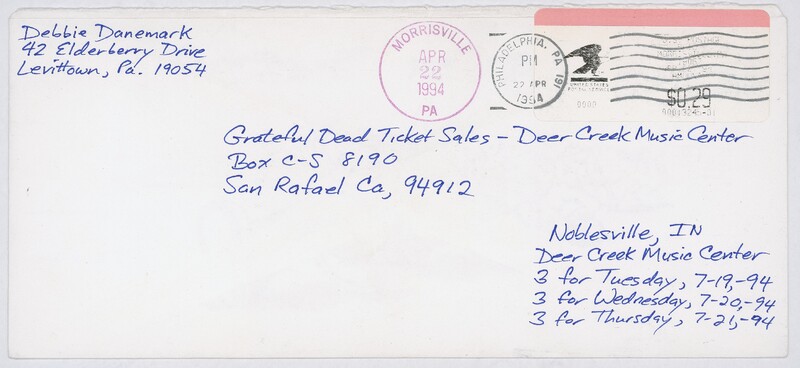 Debbie Danemark
42 Elderberry Drive
Levittown, Pa. 19054
MORRISVILLE
APR
22
1994
PA
PHILADELPHIA, PA 191
PM
22 APR
1994
UNITED STATES
POSTAL SERVICE
0000
$0.29
Grateful Dead Ticket Sales - Deer Creek Music Center
Box C-S 8190
San Rafael Ca, 94912
Noblesville, IN
Deer Creek Music Center
3 for Tuesday, 7-19,-94
3 for Wednesday, 7-20,-94
3 for Thursday, 7-21,-94